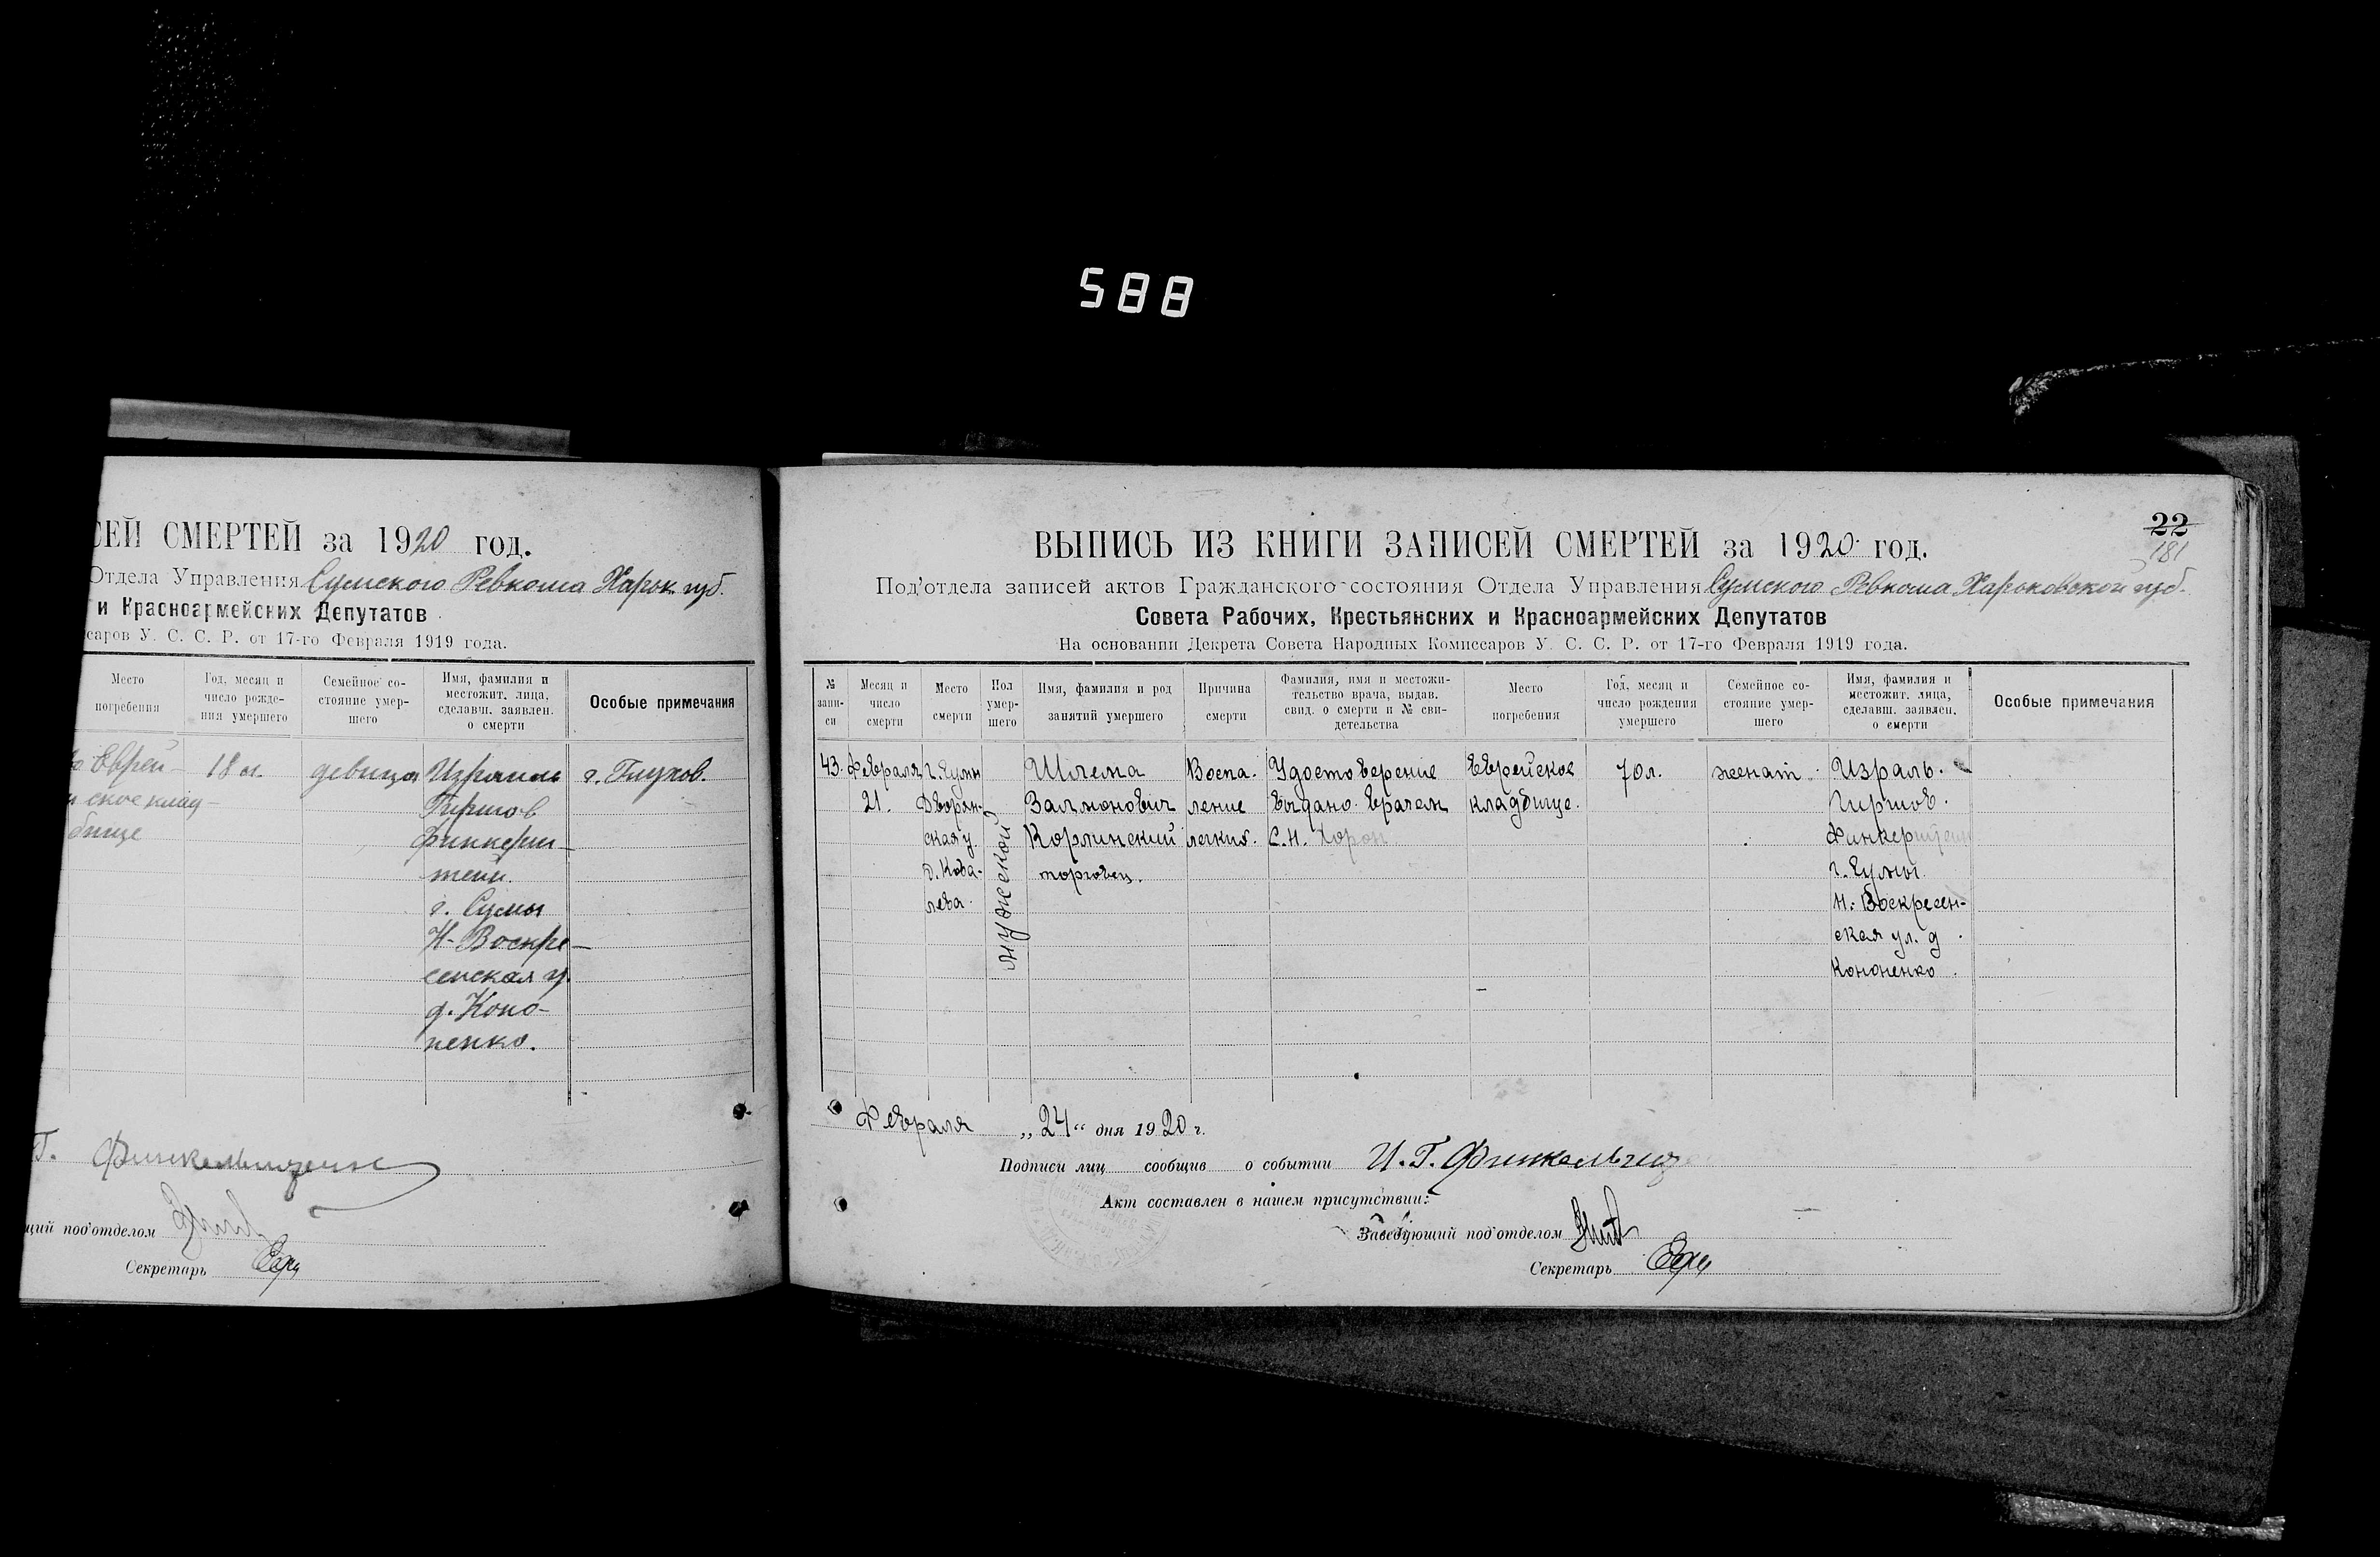 588
СЕЙ СМЕРТЕЙ за 1920 год.
Отдела Управления Сумского Ревкома Харьк. губ.
и Красноармейских Депутатов
саров У. С. С. Р. от 17-го Февраля 1919 года.
Место погребения
Год, месяц и число рожде-ния умершего
Семейное со-стояние умер-шего
Имя, фамилия и местожит. лица, сделавш. заявлен. о смерти
Особые примечания
Еврей-
ское клад-
бище
18 л.
девица
Израиль
Гиршов
Финкерш-
тейн
г. Сумы
Н-Воскре-
сенская у.
д. Коно-
ненко.
г. Глухов.
Г. Финкельштейн
щий под'отделом
Секретарь
22
181
ВЫПИСЬ ИЗ КНИГИ ЗАПИСЕЙ СМЕРТЕЙ за 1920 год.
Под'отдела записей актов Гражданского состояния Отдела Управления Сумского Ревкома Харьковской губ.
Совета Рабочих, Крестьянских и Красноармейских Депутатов
На основании Декрета Совета Народных Комиссаров У. С. С. Р. от 17-го Февраля 1919 года.
№ запи-си
Месяц и число смерти
Место смерти
Пол умер-шего
Имя, фамилия и род занятий умершего
Причина смерти
Фамилия, имя и местожи-тельство врача, выдав. свид. о смерти и № сви-детельства
Место погребения
Год, месяц и число рождения умершего
Семейное со-стояние умер-шего
Имя, фамилия и местожит. лица, сделавш. заявлен. о смерти
Особые примечания
43.
Февраля
21.
г. Сумы
Дворян-
ская у.
д. Кова-
лева.
мужской
Шлема
Залмонович
Корлинский
торговец.
Воспа-
ление
легких.
Удостоверение
выдано врачем
С.Н.
Еврейское
кладбище.
70 л.
женат
Израль.
Гиршов.
Финкерштейн
г. Сумы
Н. Воскресен-
ская ул. д
Кононенко.
Февраля „24“ дня 1920 г.
Подписи лиц сообщив о событии И. Г. Финкельште
Акт составлен в нашем присутствии:
Заведующий под'отделом
Секретарь